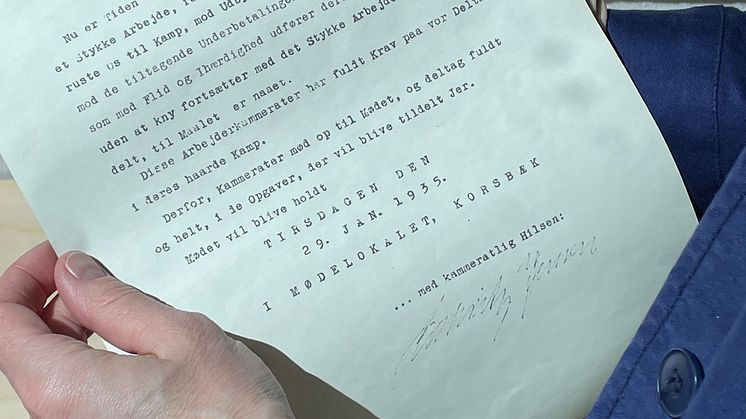 Nu er Tiden
et Stykke Arbejde,
ruste Os til Kamp, mod
mod de tiltagende Underbetalinger
som med Flid og Ihærdighed udfører
uden at kny fortsætter med det Stykke Arbejde
delt, til Maalet er naaet.
Disse Arbejderkammerater har fuldt Krav paa vor
i deres haarde Kamp.
Derfor, Kammerater mød op til Mødet, og deltag fuldt
og helt, i de Opgaver, der vil blive tildelt Jer.
Mødet vil blive holdt
TIRSDAGEN DEN
29. JAN. 1935.
I MØDELOKALET, KORSBÆK
... med kammeratlig Hilsen: